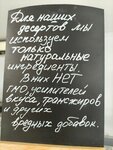 Для наших
десертов мы
используем
только
натуральные
ингредиенты.
В них НЕТ
ГМО, усилителей
вкуса, транжиров
и других
вредных добавок.